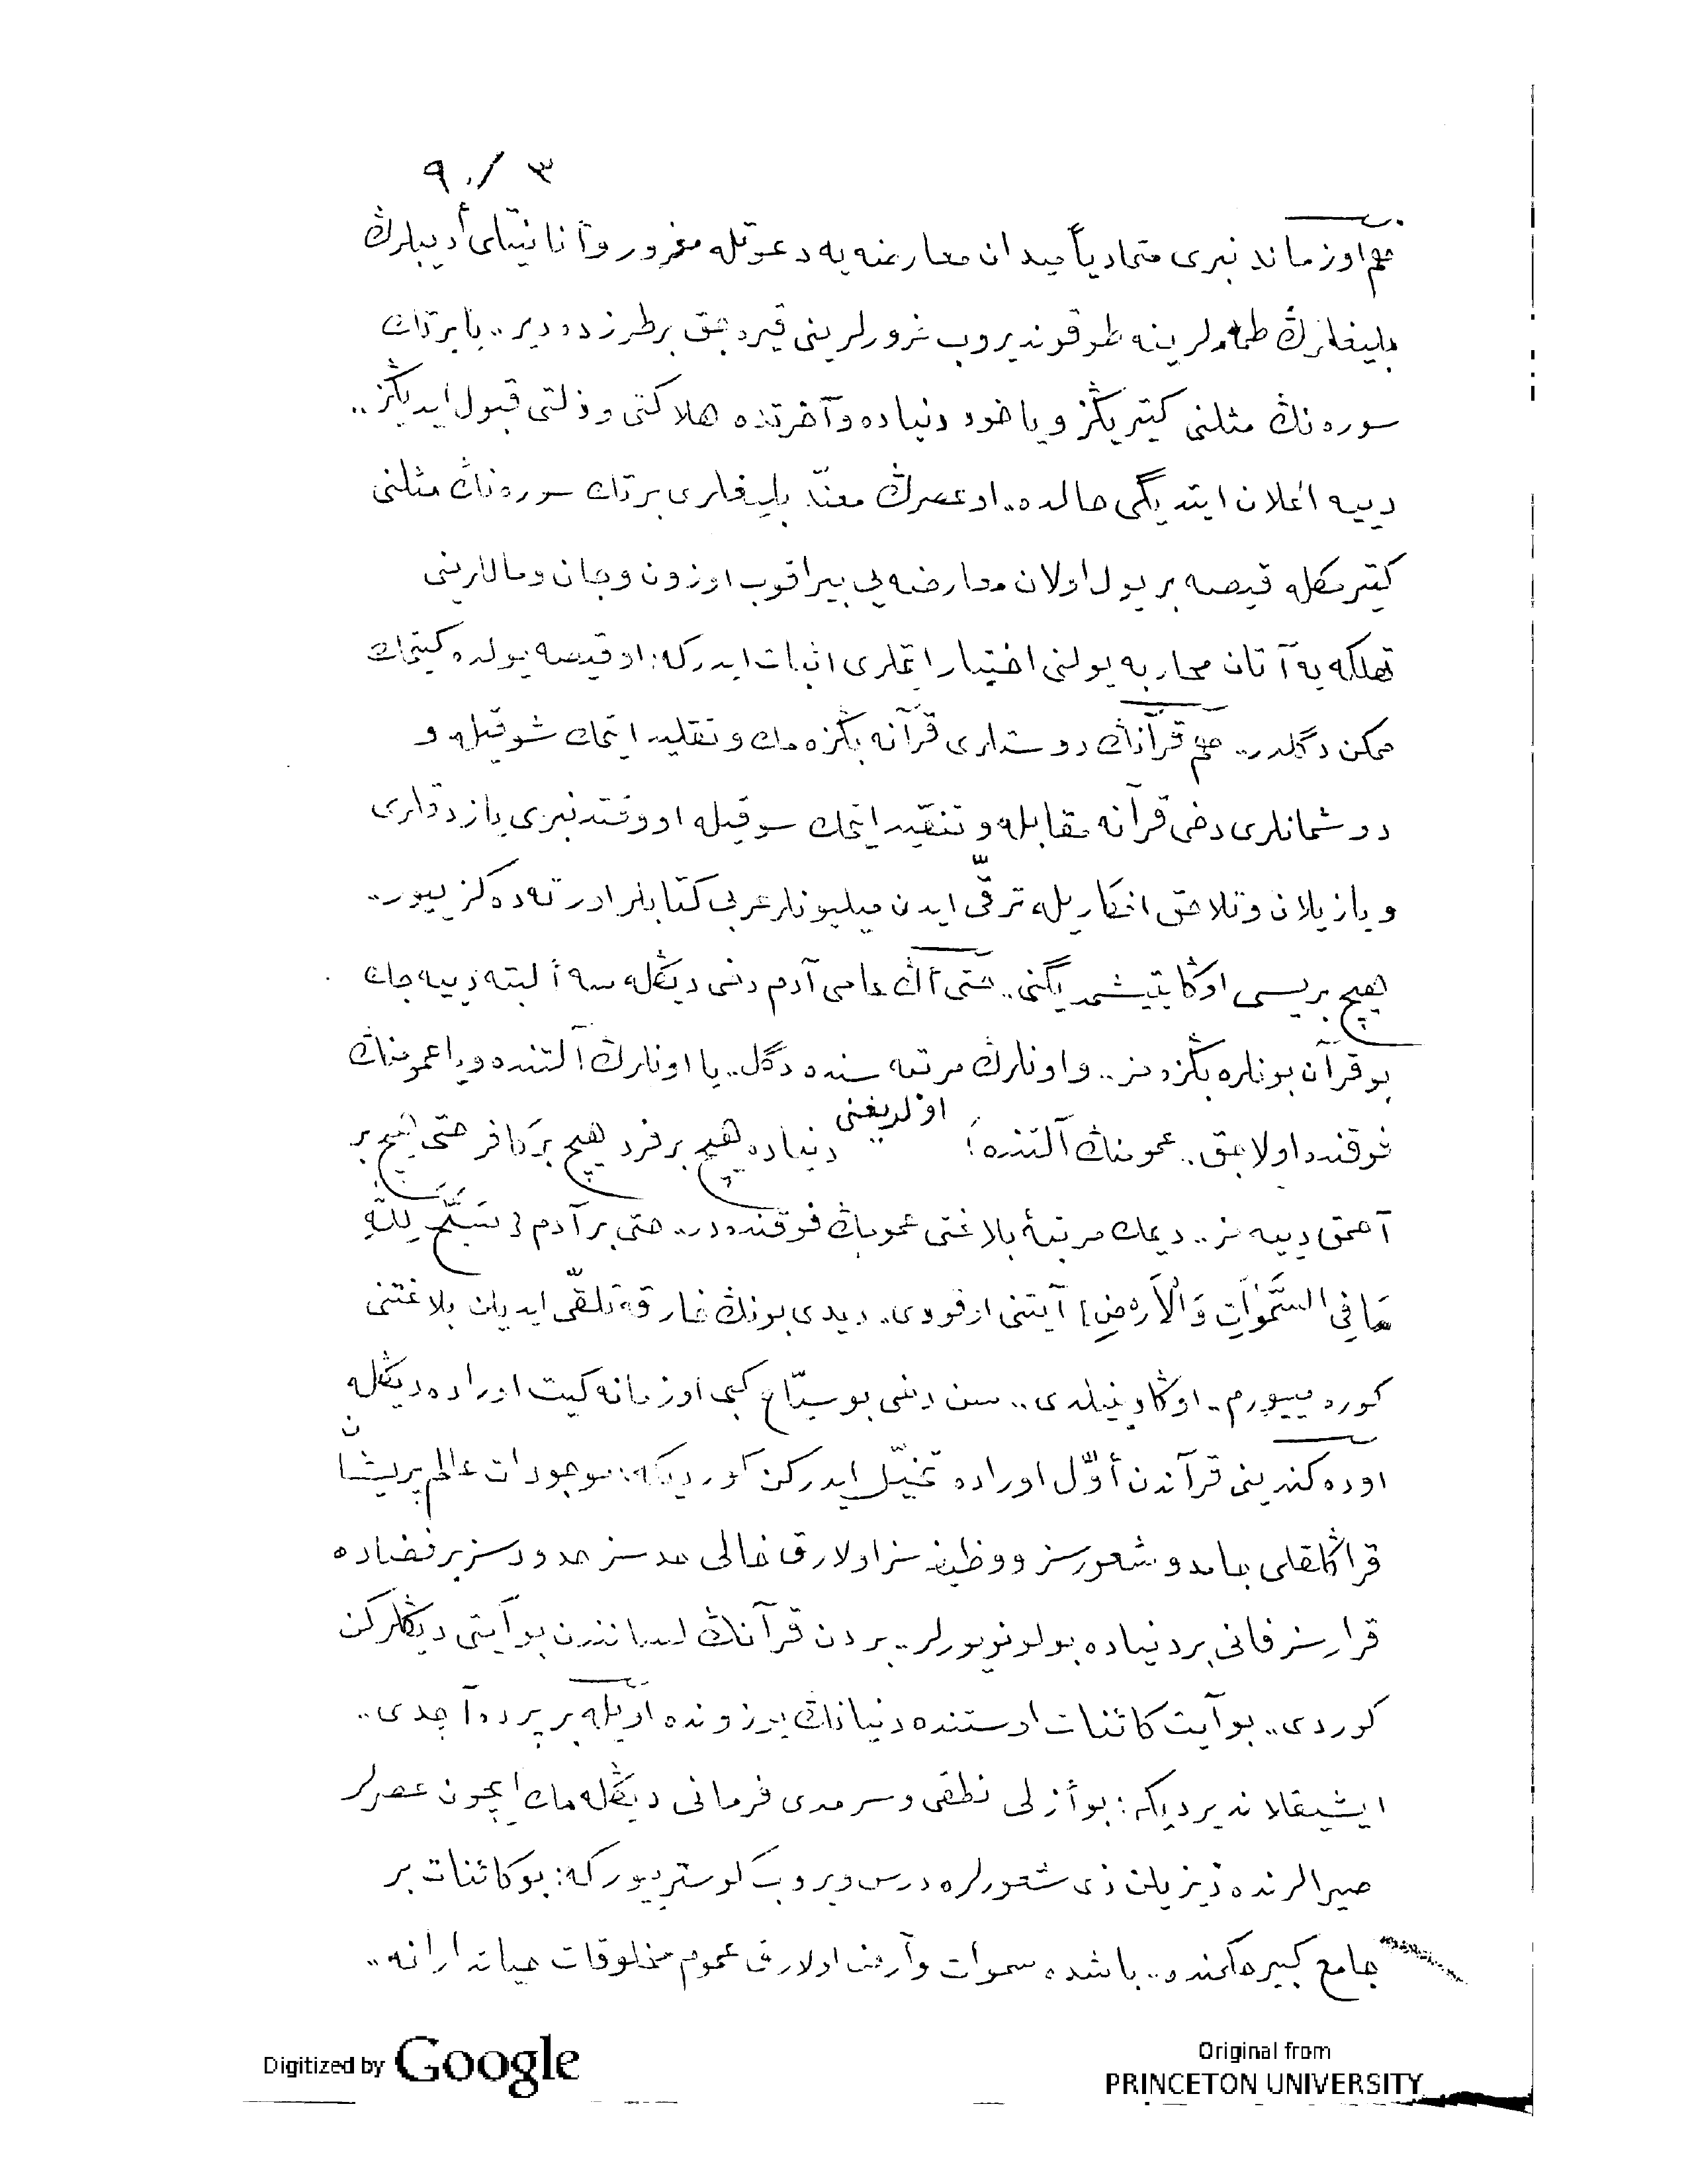 ٩٠/٣
هم اوزماندنبری متمادیاً میدان معارضه‌یه دعوتله مغرور وأنانیتلی أدیبلرڭ
بلیغلرڭ طمارلرینه طوقوندیروب غرورلرینی قیره‌جق برطرزده دیر.. یا برتك
سوره‌نڭ مثلنی كتیریڭز ویاخود دنیاده وآخرتده هلاكتی وذلتی قبول ایدیڭز..
دییه اعلان ایتدیگی حالده.. اوعصرڭ معنّد بلیغلری برتك سوره‌نڭ مثلنی
كتیرمكله قیصه بریول اولان معارضه‌یی بیراقوب اوزون وجان وماللرینی
تهلكه‌یه آتان محاربه یولنی اختیار ایتملری اثبات ایدركه: اوقیصه یولده كیتمك
ممكن دگلدر.. هم قرآنڭ دوستلری قرآنه بڭزه‌مك وتقلید ایتمك شوقیله و
دوشمانلری دخی قرآنه مقابله وتنقید ایتمك سوقیله اووقتدنبری یازدقلری
ویازیلان وتلاحق افكاریله ترقّی ایدن میلیونلر عربی كتابلر اورته‌ده گزییور..
هیچ بریسی اوڭا یتیشمدیگنی.. حتی أڭ عامی آدم دخی دیڭله‌سه ألبته دییه‌جك
بو قرآن بونلره بڭزه‌مز.. واونلرڭ مرتبه‌سنده دگل.. یا اونلرڭ آلتنده ویا عمومنڭ
فوقنده اولاجق.. عمومنڭ آلتنده اولدیغنی دنیاده هیچ برفرد هیچ بركافر حتی هیچ بر
آحمق دییه‌مز.. دیمك مرتبۀ بلاغتی عمومڭ فوقنده‌در.. حتی برآدم [سَبَّحَ لِلّٰهِ
مَا فِى السَّمٰوَاتِ وَالْاَرْضِ] آیتنی اوقودی. دیدی بونڭ خارقه تلقّی ایدیلن بلاغتنی
كوره‌مییورم.. اوڭا دینیلدی.. سن دخی بوسیّاح كبی اوزمانه كیت اوراده دیڭله
اوده كندینی قرآندن أوّل اوراده تخیّل ایدركن كوردیكه: موجودات عالم پریشان
قراڭلقلی جامد وشعورسز ووظیفه‌سز اولارق خالی حدسز حدودسز برفضاده
قرارسز فانی بردنیاده بولونویورلر.. بردن قرآنڭ لساندن بوآیتی دیڭلركن
كوردی.. بوآیت كائنات اوستنده دنیانڭ یوزونده اویله برپرده آچدی..
ایشیقلاندیردیكه: بو أزلی نطقی وسرمدی فرمانی دیڭله‌مك ایچون عصرلر
صیرالرنده دیزیلن ذی شعورلره درس ویروب كوستریوركه: بوكائنات بر
جامع كبیر حكمنده.. باشده سموات وآرض اولارق عموم مخلوقات حیاتدارانه..
Digitized by Google
Original from
PRINCETON UNIVERSITY